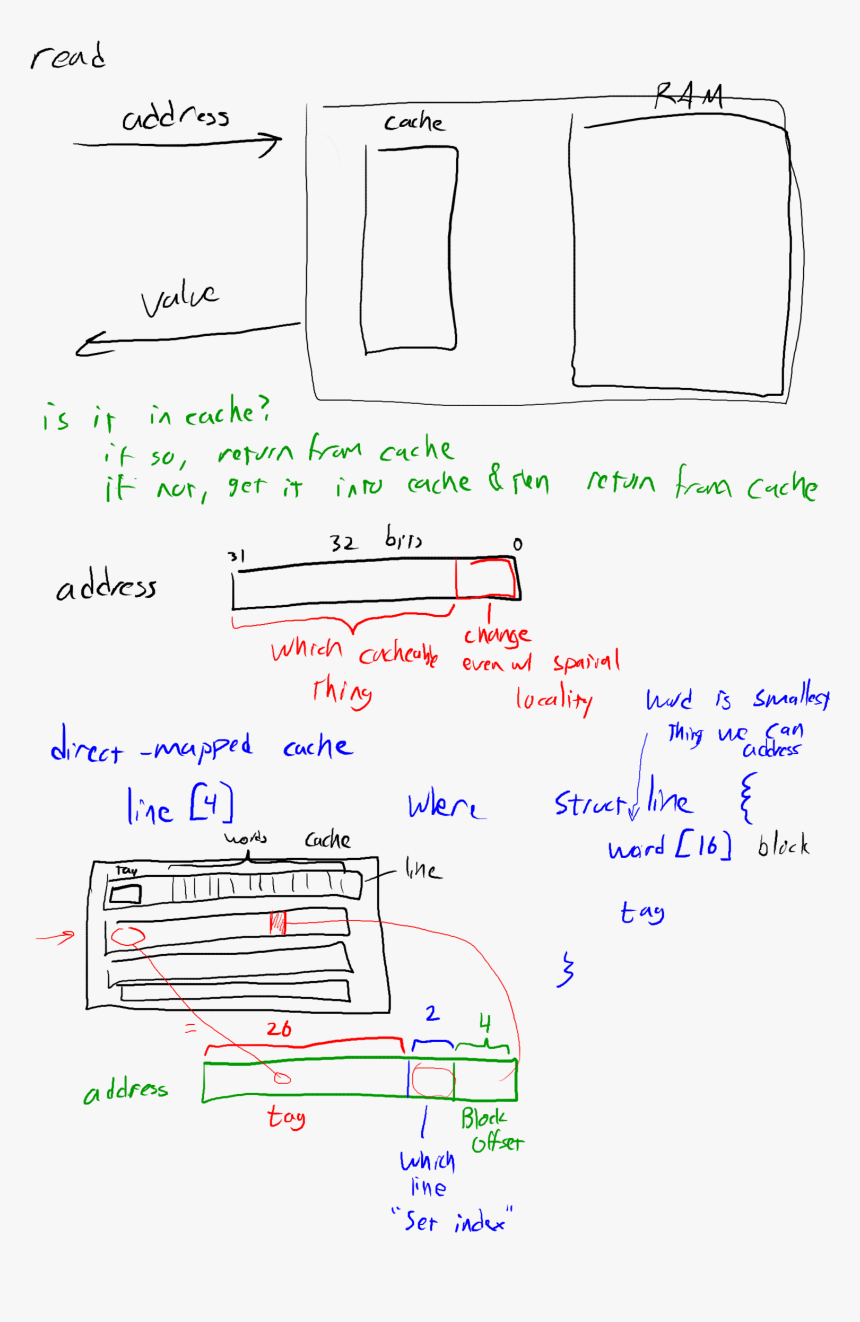 read
address
cache
RAM
value
is it in cache?
if so, return from cache
if not, get it into cache & then return from cache
31
32 bits
0
address
which cacheable thing
change even w/ spatial locality
word is smallest
thing we can
address
direct-mapped cache
line [4] where struct line {
word [16] block
tag
}
words
cache
tag
line
=
26
2
4
address
tag
Block
offset
which
line
"set index"